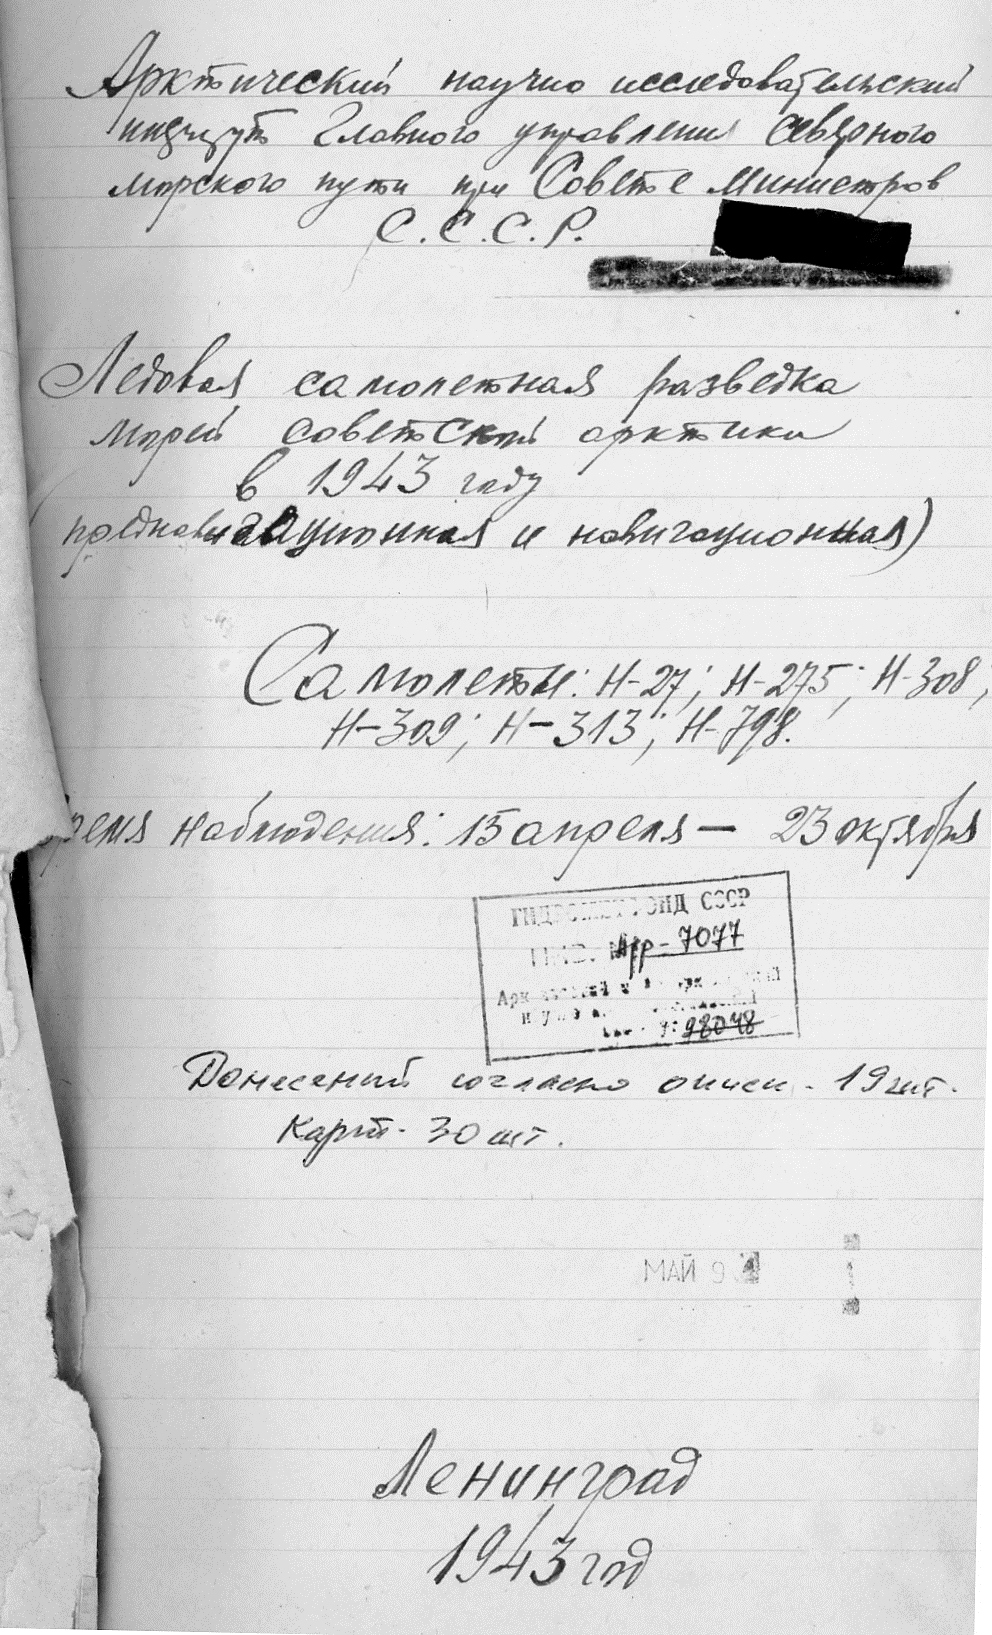 Арктический научно исследовательский
институт Главного управления северного
морского пути при Совете Министров
С.С.С.Р.
Ледовая самолетная разведка
морей советской арктики
в 1943 году
(преднавигационная и навигационная)
Самолеты: Н-27; Н-275; Н-308;
Н-309; Н-313; Н-798.
Время наблюдения: 15 апреля — 23 октября
ГИДРОМЕТФОНД СССР
ИНВ. № Арр-7077
98048
Донесений согласно описи - 19 шт.
Карт - 30 шт.
МАЙ 9
Ленинград
1943 год